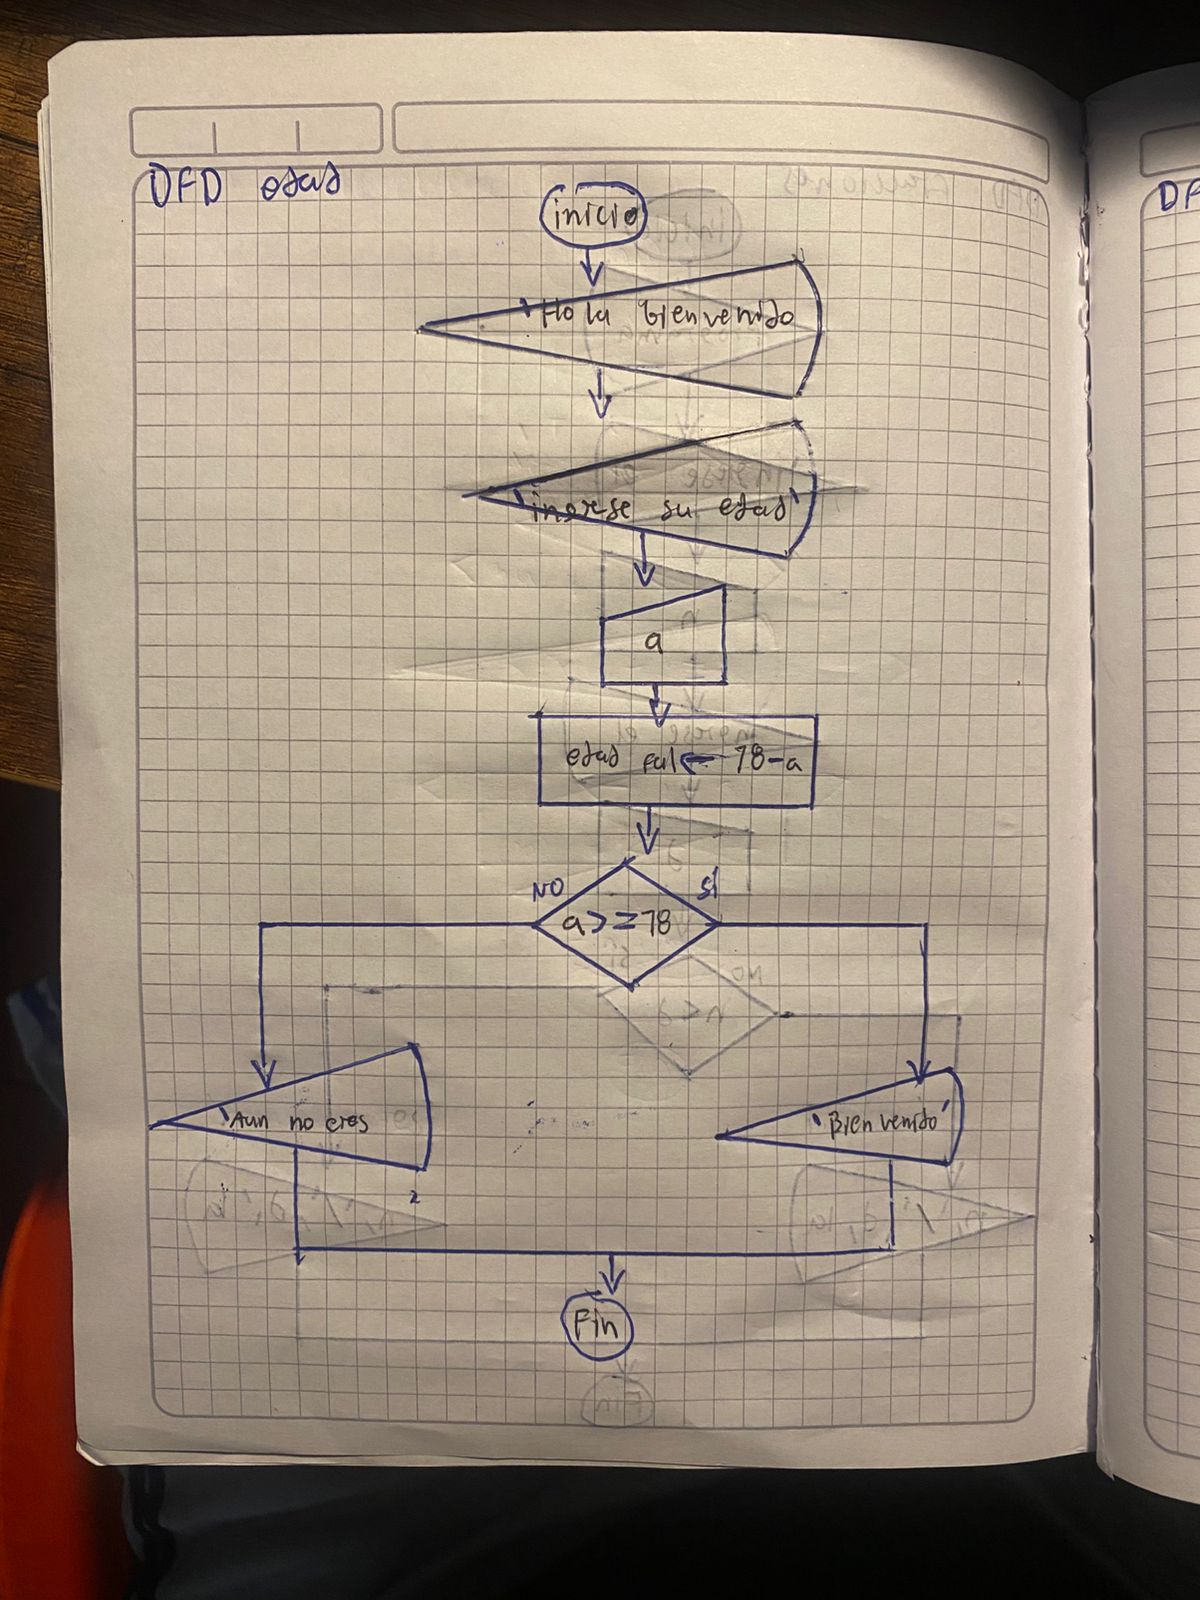 DFD edad
DF
inicio
'Hola bienvenido
'ingrese su edad'
a
edad fal ← 18-a
NO
SI
a>=18
'Aun no eres
'Bienvenido'
Fin